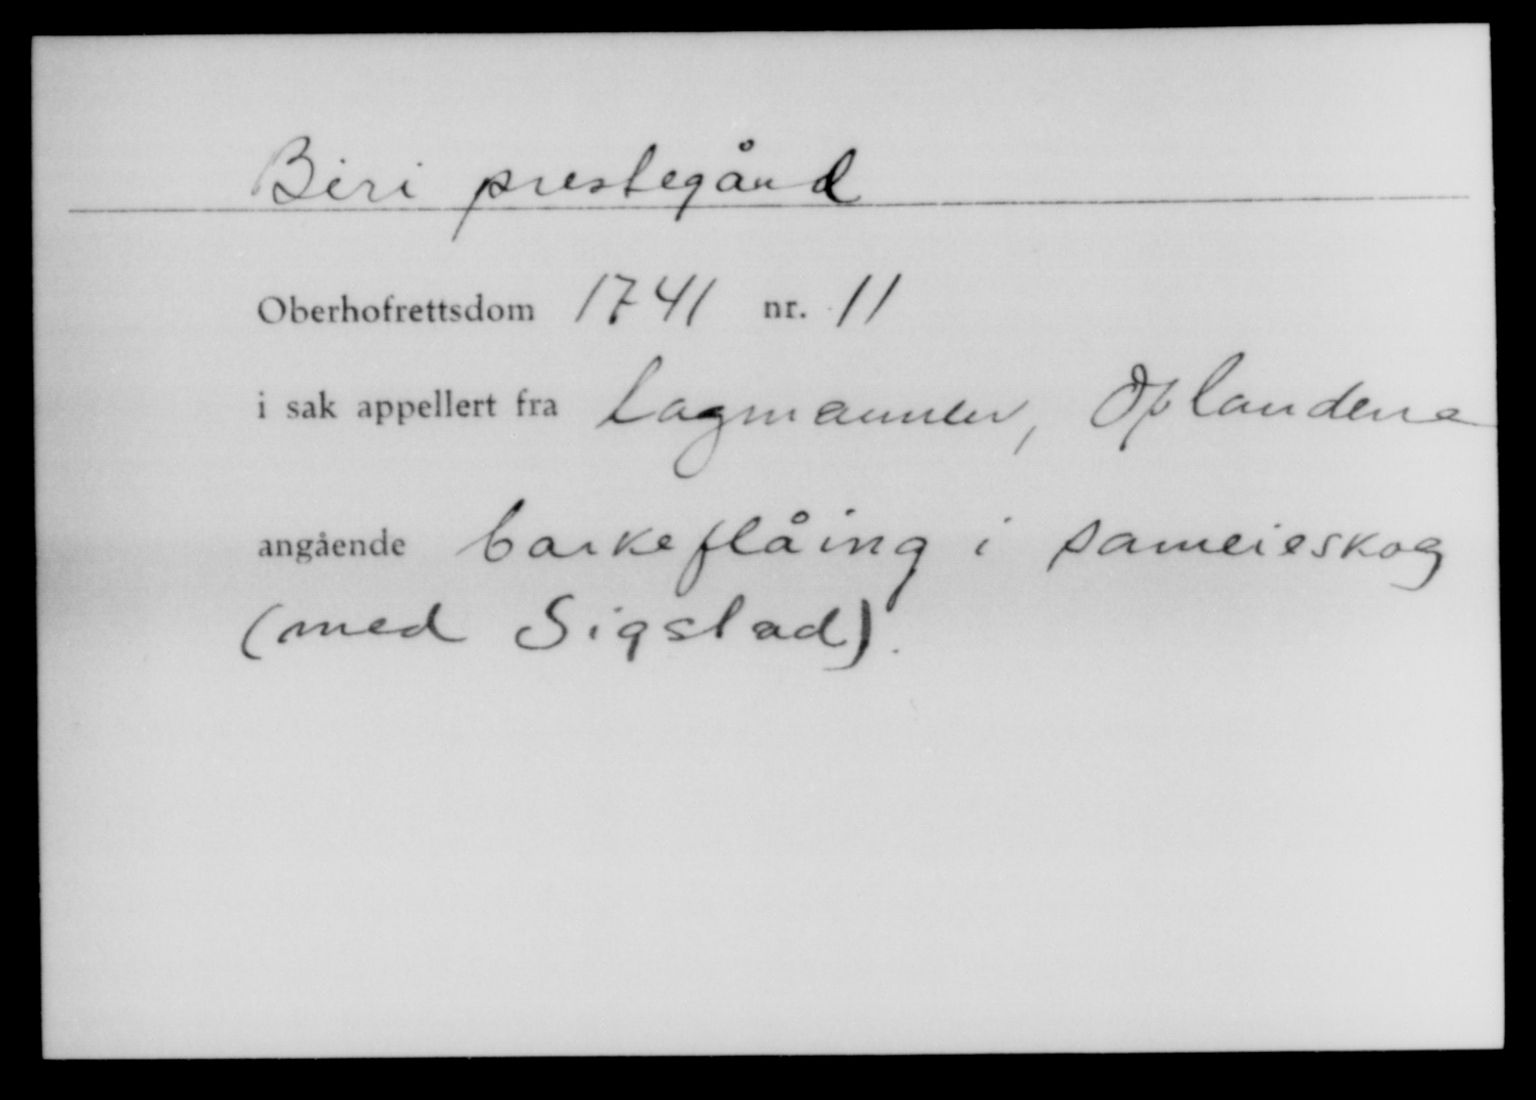 Biri prestegård
Oberhofrettsdom 1741 nr. 11
i sak appellert fra Lagmannen, Oplandene
angående barkeflåing i sameieskog
(med Sigstad).